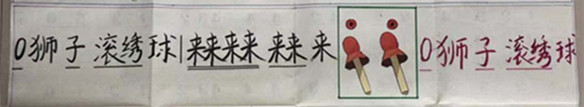 0狮子 滚绣球|来来来来 来来 来 0狮子 滚绣球